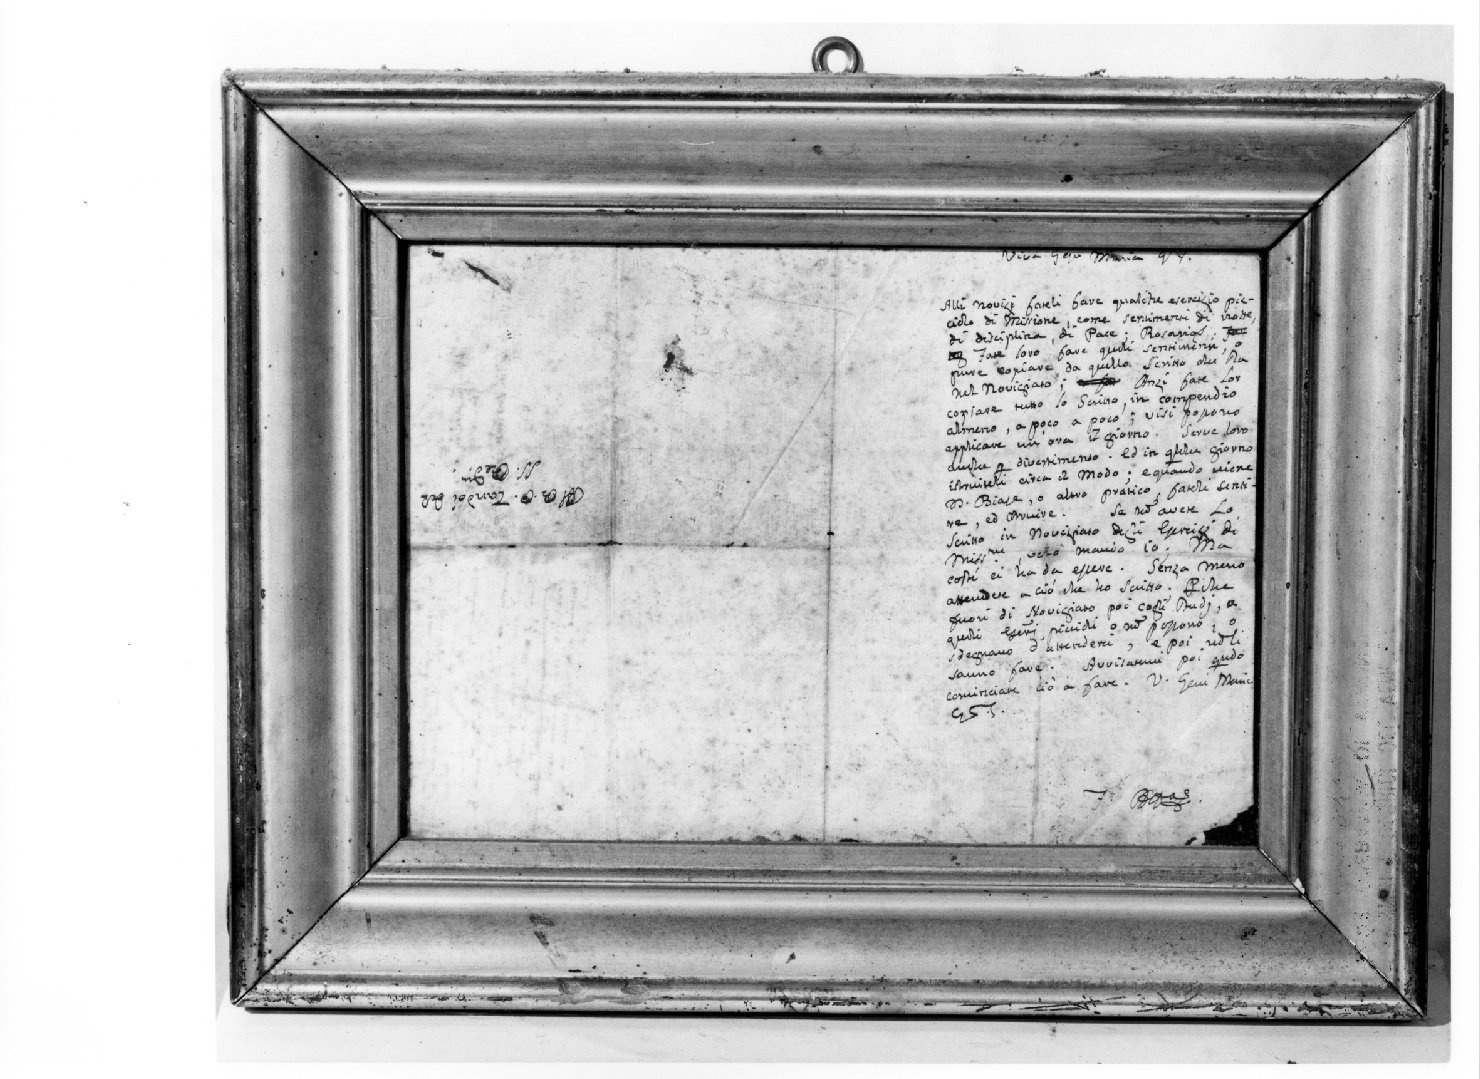 Viva Gesù Maria
Alli Novizj fateli fare qualche esercizio pic-
ciolo di Missione, come sentimenti di notte,
di disciplina, di Pace, Rosario
Fate loro fare quelli sentimenti, o
pure copiare da quello Scritto che sta
nel Noviziato; Anzi fate lor
copiare tutto lo Scritto, in compendio
almeno, a poco a poco; visi possono
applicare un'ora il giorno. Serve loro
anche p divertimento. Ed in qlche giorno
istruiteli circa il Modo; e quando viene
D. Biase, o altro pratico, fateli senti-
re, ed istruire. Se nō avete lo
Scritto in Noviziato degli Esercizj di
Miss.ne, velo mando io. Ma
costì ci ha da essere. Senza meno
attendete a ciò che ho scritto. Pche
fuori di Noviziato poi cogli Studj, a
quelli Eserzj piccioli o nō possono, o
sdegnano d'attenderci, e poi nō li
sanno fare. Avvisatemi poi qndo
cominciate ciò a fare. V. Gesù Maria